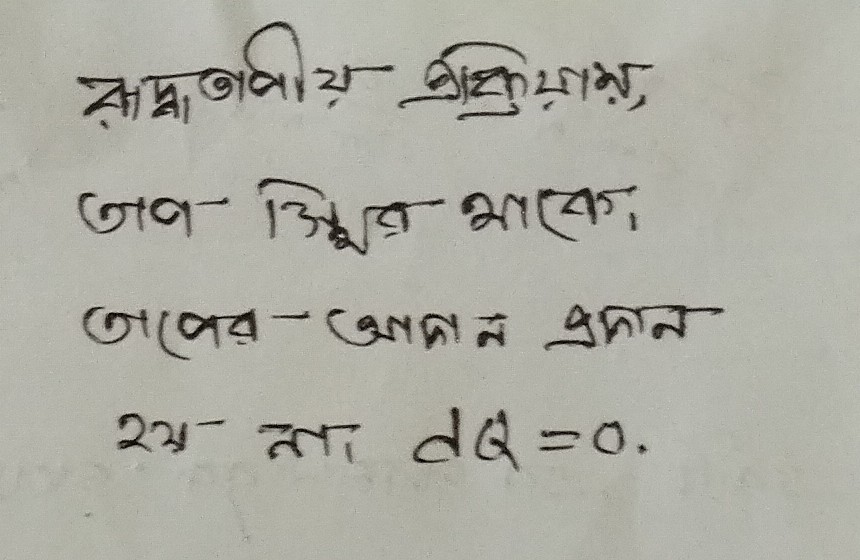 রুদ্ধতাপীয় প্রক্রিয়ায়,
তাপ স্থির থাকে।
তাপের আদান প্রদান
হয় না। dQ = 0.